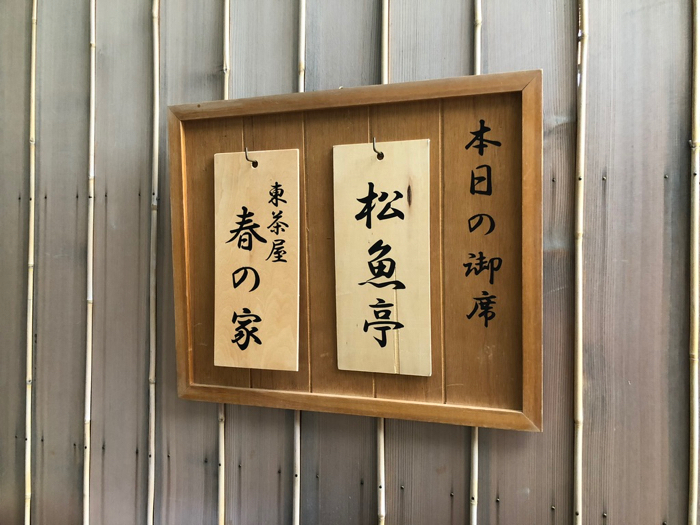 本日の御席
松魚亭
東茶屋
春の家